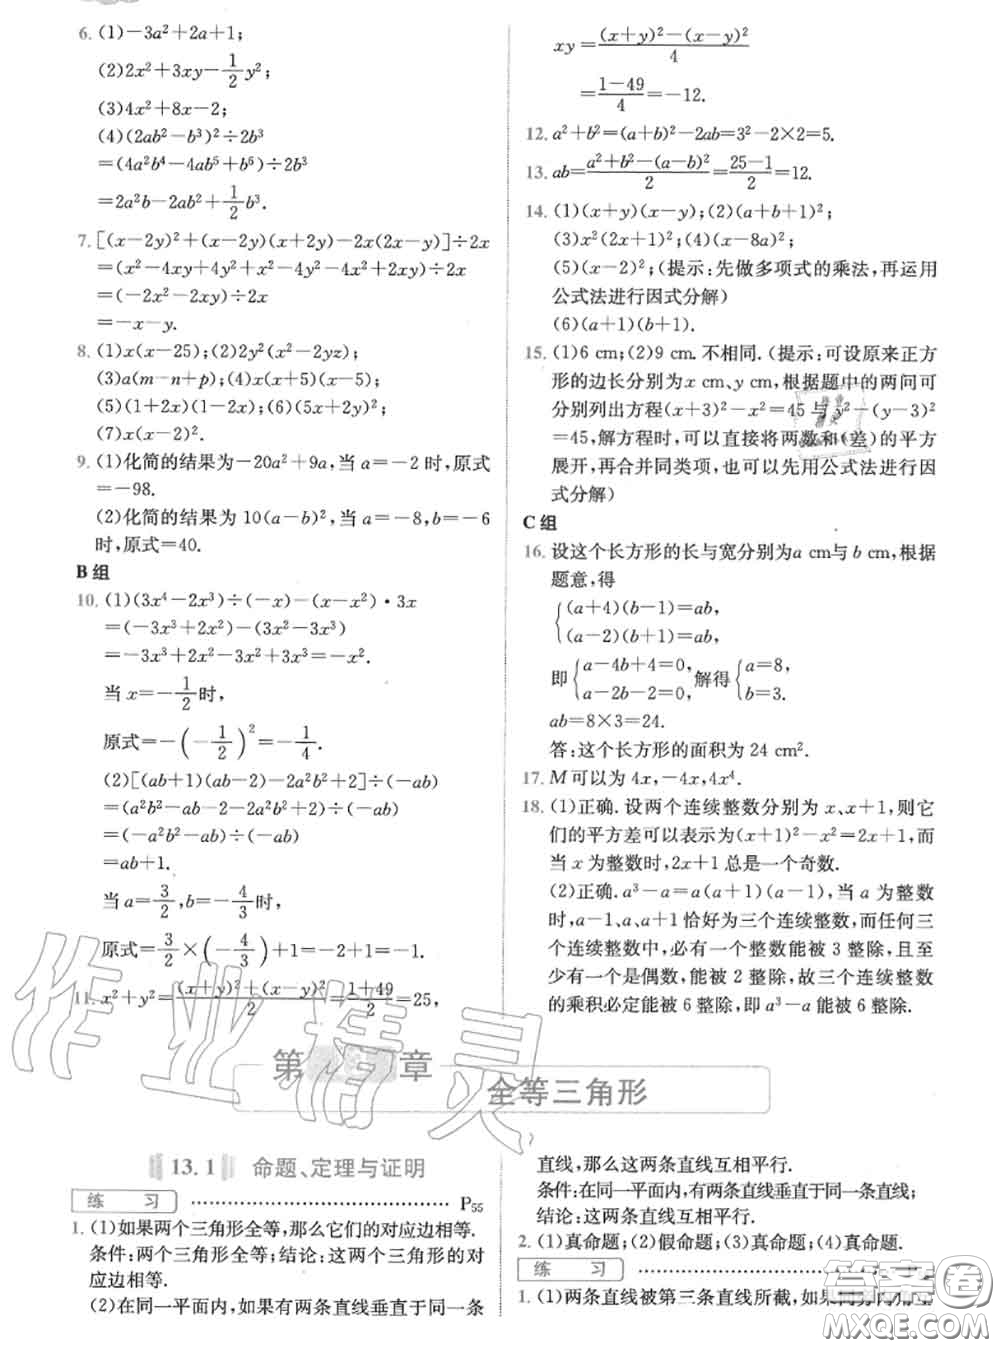 6. (1)-3a²+2a+1;
(2)2x²+3xy-1/2y²;
(3)4x²+8x-2;
(4)(2ab²-b³)²÷2b³
=(4a²b⁴-4ab⁵+b⁶)÷2b³
=2a²b-2ab²+1/2b³.
7. [(x-2y)²+(x-2y)(x+2y)-2x(2x-y)]÷2x
=(x²-4xy+4y²+x²-4y²-4x²+2xy)÷2x
=(-2x²-2xy)÷2x
=-x-y.
8. (1)x(x-25);(2)2y²(x²-2yz);
(3)a(m-n+p);(4)x(x+5)(x-5);
(5)2(1+2x)(1-2x);(6)(5x+2)²;
(7)x(x-2)².
9. (1)化简的结果为-20a²+9a,当a=-2时,原式
=-98.
(2)化简的结果为10(a-b)²,当a=-8,b=-6
时,原式=40.
B组
10. (1)(3x⁴-2x³)÷(-x)-(x-x²)·3x
=(-3x³+2x²)-(3x²-3x³)
=-3x³+2x²-3x²+3x³=-x².
当x=-1/2时,
原式=-(-1/2)²=-1/4.
(2)[(ab+1)(ab-2)-2a²b²+2]÷(-ab)
=(a²b²-ab-2-2a²b²+2)÷(-ab)
=(-a²b²-ab)÷(-ab)
=ab+1.
当a=3/2,b=-4/3时,
原式=3/2×(-4/3)+1=-2+1=-1.
11. x²+y²=((x+y)²+(x-y)²)/2=(1+49)/2=25,
xy=((x+y)²-(x-y)²)/4
=(1-49)/4=-12.
12. a²+b²=(a+b)²-2ab=3²-2×2=5.
13. ab=(a²+b²-(a-b)²)/2=(25-1)/2=12.
14. (1)(x+y)(x-y);(2)(a+b+1)²;
(3)x²(2x+1)²;(4)(x-8a)²;
(5)(x-2)²;(提示:先做多项式的乘法,再运用
公式法进行因式分解)
(6)(a+1)(b+1).
15. (1)6 cm;(2)9 cm.不相同.(提示:可设原来正方
形的边长分别为x cm、y cm,根据题中的两问可
分别列出方程(x+3)²-x²=45与y²-(y-3)²
=45,解方程时,可以直接将两数和(差)的平方
展开,再合并同类项,也可以先用公式法进行因
式分解)
C组
16. 设这个长方形的长与宽分别为a cm与b cm,根据
题意,得
{(a+4)(b-1)=ab,
(a-2)(b+1)=ab,
即{a-4b+4=0, a-2b-2=0,解得{a=8, b=3.
ab=8×3=24.
答:这个长方形的面积为24 cm².
17. M可以为4x,-4x,4x⁴.
18. (1)正确.设两个连续整数分别为x、x+1,则它
们的平方差可以表示为(x+1)²-x²=2x+1,而
当x为整数时,2x+1总是一个奇数.
(2)正确.a³-a=a(a+1)(a-1),当a为整数
时,a-1、a、a+1恰好为三个连续整数,而任何三
个连续整数中,必有一个整数能被3整除,且至
少有一个是偶数,能被2整除,故三个连续整数
的乘积必定能被6整除,即a³-a能被6整除.
第 章
全等三角形
13.1 命题、定理与证明
练 习 P55
1. (1)如果两个三角形全等,那么它们的对应边相等.
条件:两个三角形全等;结论:这两个三角形的对
应边相等.
(2)在同一平面内,如果有两条直线垂直于同一条
直线,那么这两条直线互相平行.
条件:在同一平面内,有两条直线垂直于同一条直线;
结论:这两条直线互相平行.
2. (1)真命题;(2)假命题;(3)真命题;(4)真命题.
练 习
1. (1)两条直线被第三条直线所截,如果同旁内角互
作业精灵
答案圈
MXQE.COM